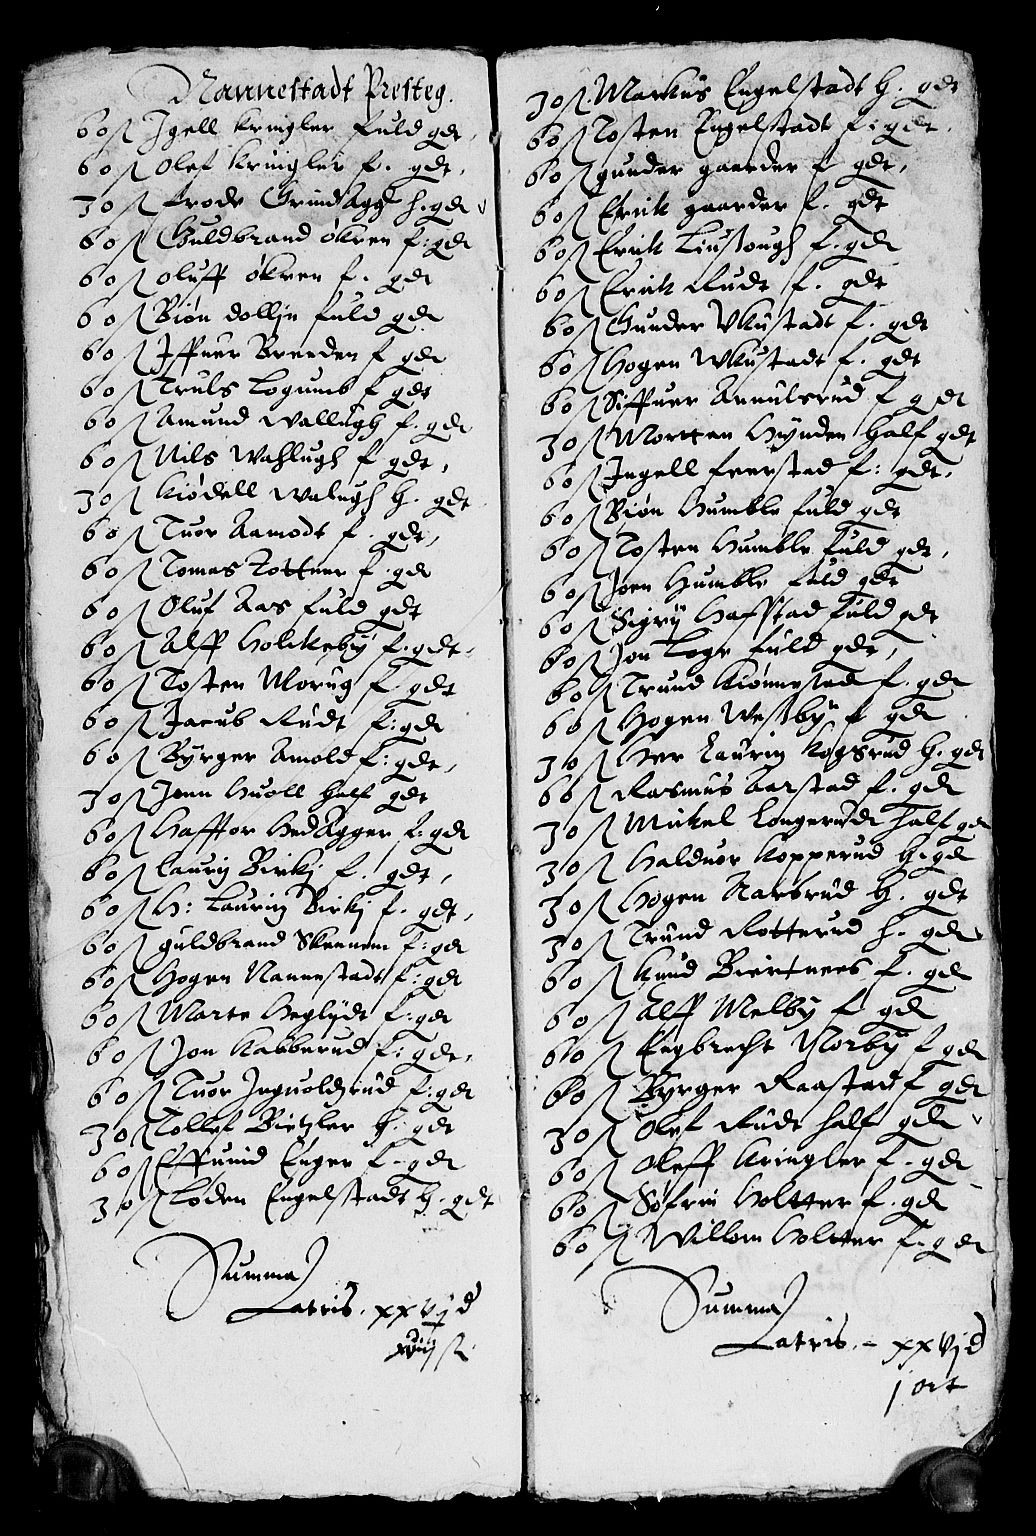 Nannestadt Presteg.
60 ß Igell Kringler fuld gdt,
60 ß Olef Kringler f. gdt,
30 ß frode Grindagg h. gdt
60 ß Guldbrand økren f: gdt
60 ß oluff økren f. gdt
60 ß Biøn dollin fuld gdt
60 ß Iffuer Breeden f gdt
60 ß Truls Logumb f gdt
60 ß Amund Wallugh f. gdt
60 ß Nils Wahlugh f gdt,
30 ß Kiødell Walugh h. gdt
60 ß Tuor Aamodt f. gdt,
60 ß Tomes Tottner f. gdt
60 ß Oluf Aas fuld gdt
60 ß Alff Holckeby f. gdt.
60 ß Tosten Morug f gdt
60 ß Jacub Rudt f: gdt
60 ß Byrger Amold f: gdt,
30 ß Jenn Huoll half gdt
60 ß Hafftor Hedagger f: gdt
60 ß Laurij Birkj f. gdt,
60 ß H: Laurinj Birkj f. gdt,
60 ß guldbrand Skennem f: gdt
60 ß Hogen Nannestadt f: gdt
60 ß Marte Heglydt f: gdt
60 ß Jon Kabberud f: gdt.
60 ß Tuor Inguoldzrud f: gdt
30 ß Tollef Bietzler h: gdt
60 ß Effuind Enger f. gdt
30 ß Loden Engelstadt h. gdt
Summa
Latris. xxvj d
xviij ß
30 ß. Markus Engelstadt h. gdt
60 ß Tosten Engelstadt f: gdt.
60 ß gunder gaarder f gdt,
60 ß Erick gaarder f. gdt
60 ß Erick Linsough f. gdt
60 ß Erick Rudt f. gdt
60 ß Gunder Wkustadt f. gdt
60 ß Hogen Wkustadt f. gdt
60 ß Siffuer Annulsrud f gdt
30 ß Mortten Hynden half gdt
60 ß Ingell feerstad f: gdt.
60 ß Biøn Humble fuld gdt
60 ß Tosten Humble fuld gdt,
60 ß Joen Humble fuld gdt
60 ß Sigry Haffstad fuld gdt
60 ß Jon Loge fuld gdt,
60 ß Trund Kiønnestad f. gdt
60 ß Hogen Westby f gdt
30 ß Her Laurin Kogsrud h. gdt
60 ß Rasmus Aarstad f. gdt
30 ß Mickel Longerudt half gdt
30 ß Halduor Kopperud h. gdt
30 ß Hogen Narbrud h. gdt
30 ß Trund Rotterud h. gdt
60 ß Knud Biertnees f. gdt
60 ß Alff Melby f gdt
60 ß Engbrecht Norby f gdt
60 ß Byrger Raastad f gdt
30 ß Olef Rudt half gdt
60 ß Oleff Kringler f. gdt
60 ß Søfrin Holtter f. gdt
60 ß Willom Holtter f. gdt
Summa
Latris. - xxvj d
j ort